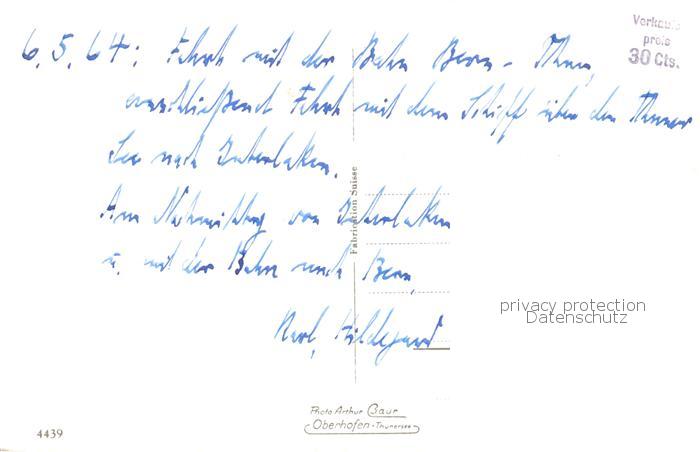 Verkaufs
preis
30 Cts.
6.5.64: Fahrt mit der Bahn Bern - Thun,
anschließend Fahrt mit dem Schiff über den Thuner
See nach Interlaken.
Am Nachmittag von Interlaken
u. mit der Bahn nach Bern.
Karl, Hildegard
Fabrication Suisse
privacy protection
Datenschutz
Photo Arthur Baur
Oberhofen-Thunersee
4439